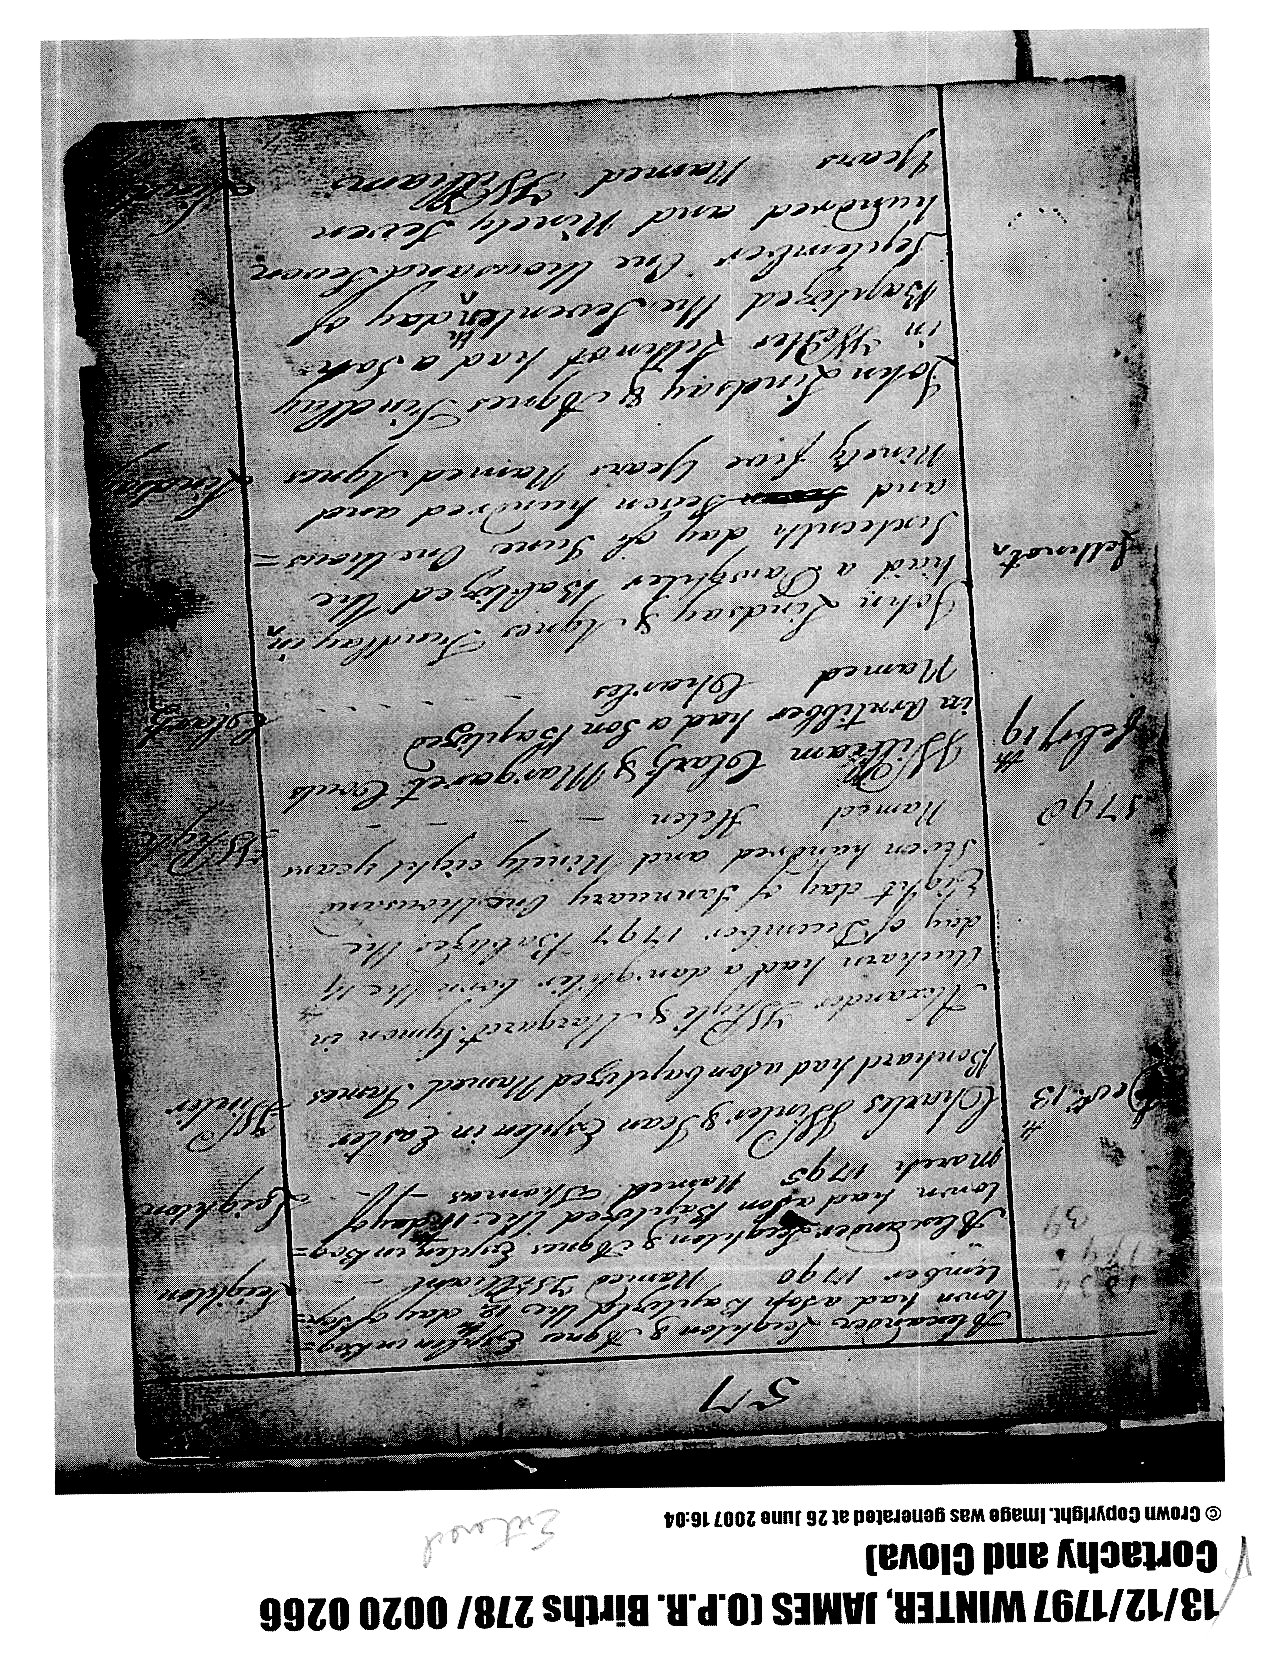 13/12/1797 WINTER, JAMES (O.P.R. Births 278/ 0020 0266
Cortachy and Clova)
© Crown Copyright. Image was generated at 26 June 2007 16:04
Entered
57
Alexander Leighton & Agnes Esplin in Bog=
town had a Son Baptized the 12 day of Sep=
tember 1790 Named William
Leighton
Alexander Leighton & Agnes Esplen in Bog=
town had a Son Baptized the 11 day of
march 1795 Named Thomas
Leighton
Decr. 13th
Charles Winter & Jean Esplen in Easter
Bonhard had a Son baptized Named James
Winter
Alexander Whyte & Margaret Symon in
had a daughter born the
day of December 1797 Babtizes the
Eight day of Jannuary One thousand
Seven hundred and Ninety eight years
Named Helen
Whyte
1798
Febry 19th
William Clark & Margaret
in had a Son Baptized
Named Charles
Clark
John Lindsay & Agnes Findlay in
Lettnot
had a Daughter Babtized the
Sixteenth day of June One thous=
and Seven hundred and
Ninety five years Named Agnes
Lindsay
John Lindsay & Agnes Findlay
in Wester Lettnot had a Son
Baptized the Sevententh day of
September One thousand Seven
hundred and Ninety Seven
Years Named William